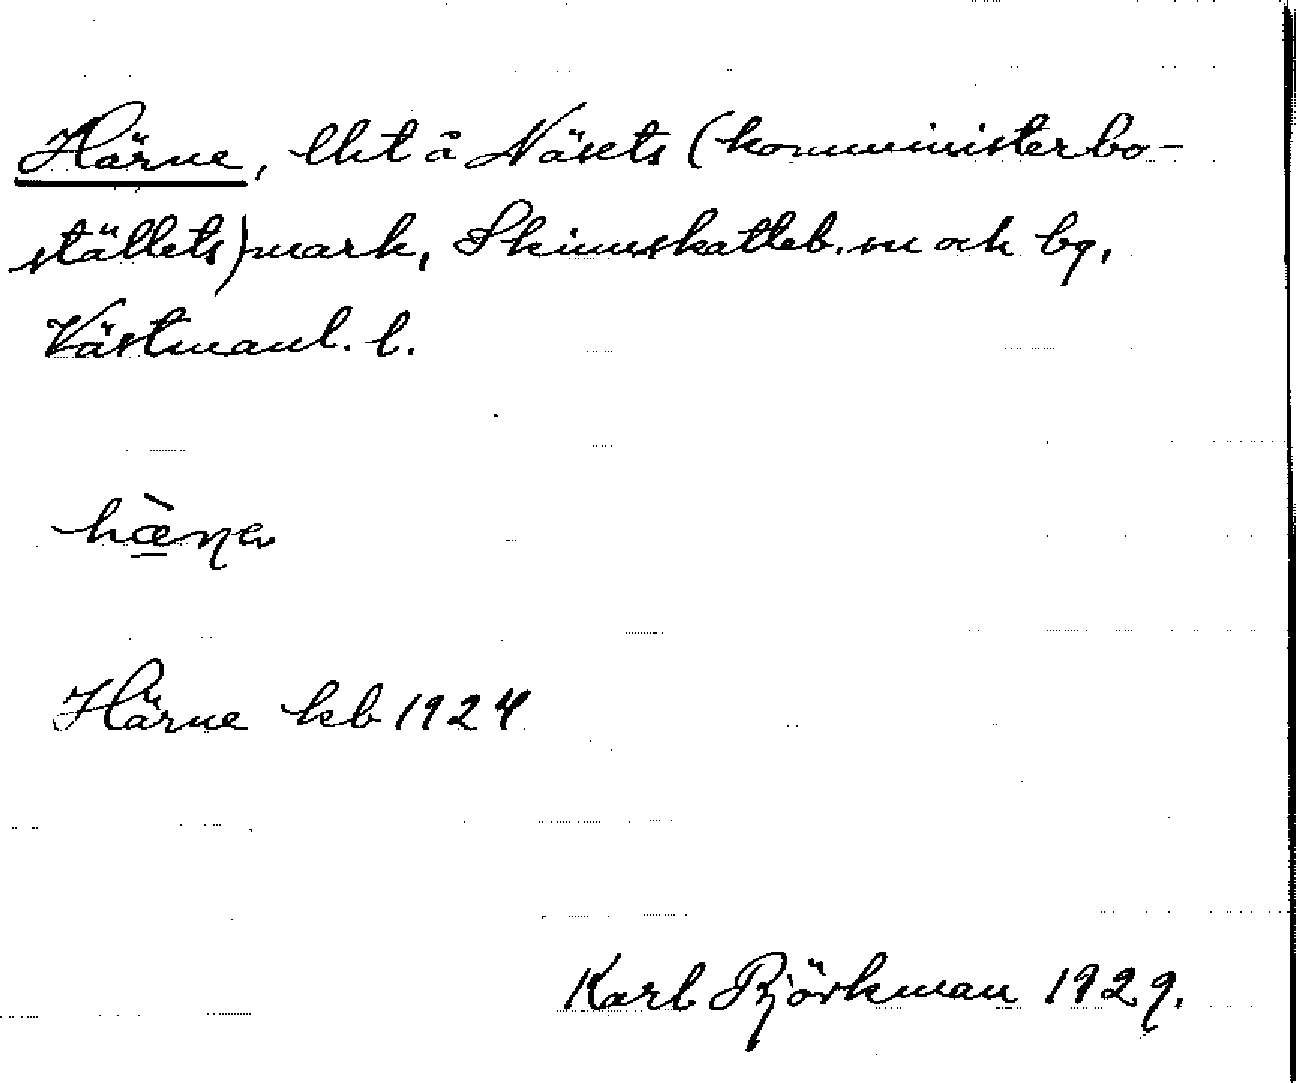 Härne, lht å Näsets (komministerbo-
ställets) mark, Skinnskatteb. sn och bg,
Västmanl. l.
hæ̀ṇa
Härne kb 1924
Karl Björkman 1929.